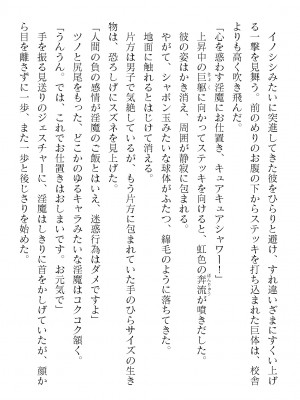 イノシシみたいに突進してきた彼をひらりと避け、すれ違いざまにすくい上げ
る一撃を見舞う。前のめりのお腹の下からステッキを打ち込まれた巨体は、校舎
よりも高く吹き飛んだ。
「心を惑わす淫魔にお仕置き、キュアキュアシャワー！」
上昇中の巨躯に向かってステッキを向けると、虹色の奔流が噴きだした。
彼の姿はかき消え、周囲が静寂に包まれる。
やがて、シャボン玉みたいな球体がふたつ、綿毛のように落ちてきた。
地面に触れるとはじけて消える。
片方は男子で気絶しているが、もう片方に包まれていた手のひらサイズの生き
物は、恐ろしげにスズネを見上げた。
「人間の負の感情が淫魔のご飯とはいえ、迷惑行為はダメですよ」
ツノと尻尾をもった、どこかのゆるキャラみたいな淫魔はコクコク頷く。
「うんうん。では、これでお仕置きはおしまいです。お元気で」
手を振る見送りのジェスチャーに、淫魔はしきりに首をかしげていたが、顔か
ら目を離さずに一歩、また一歩と後じさりを始めた。